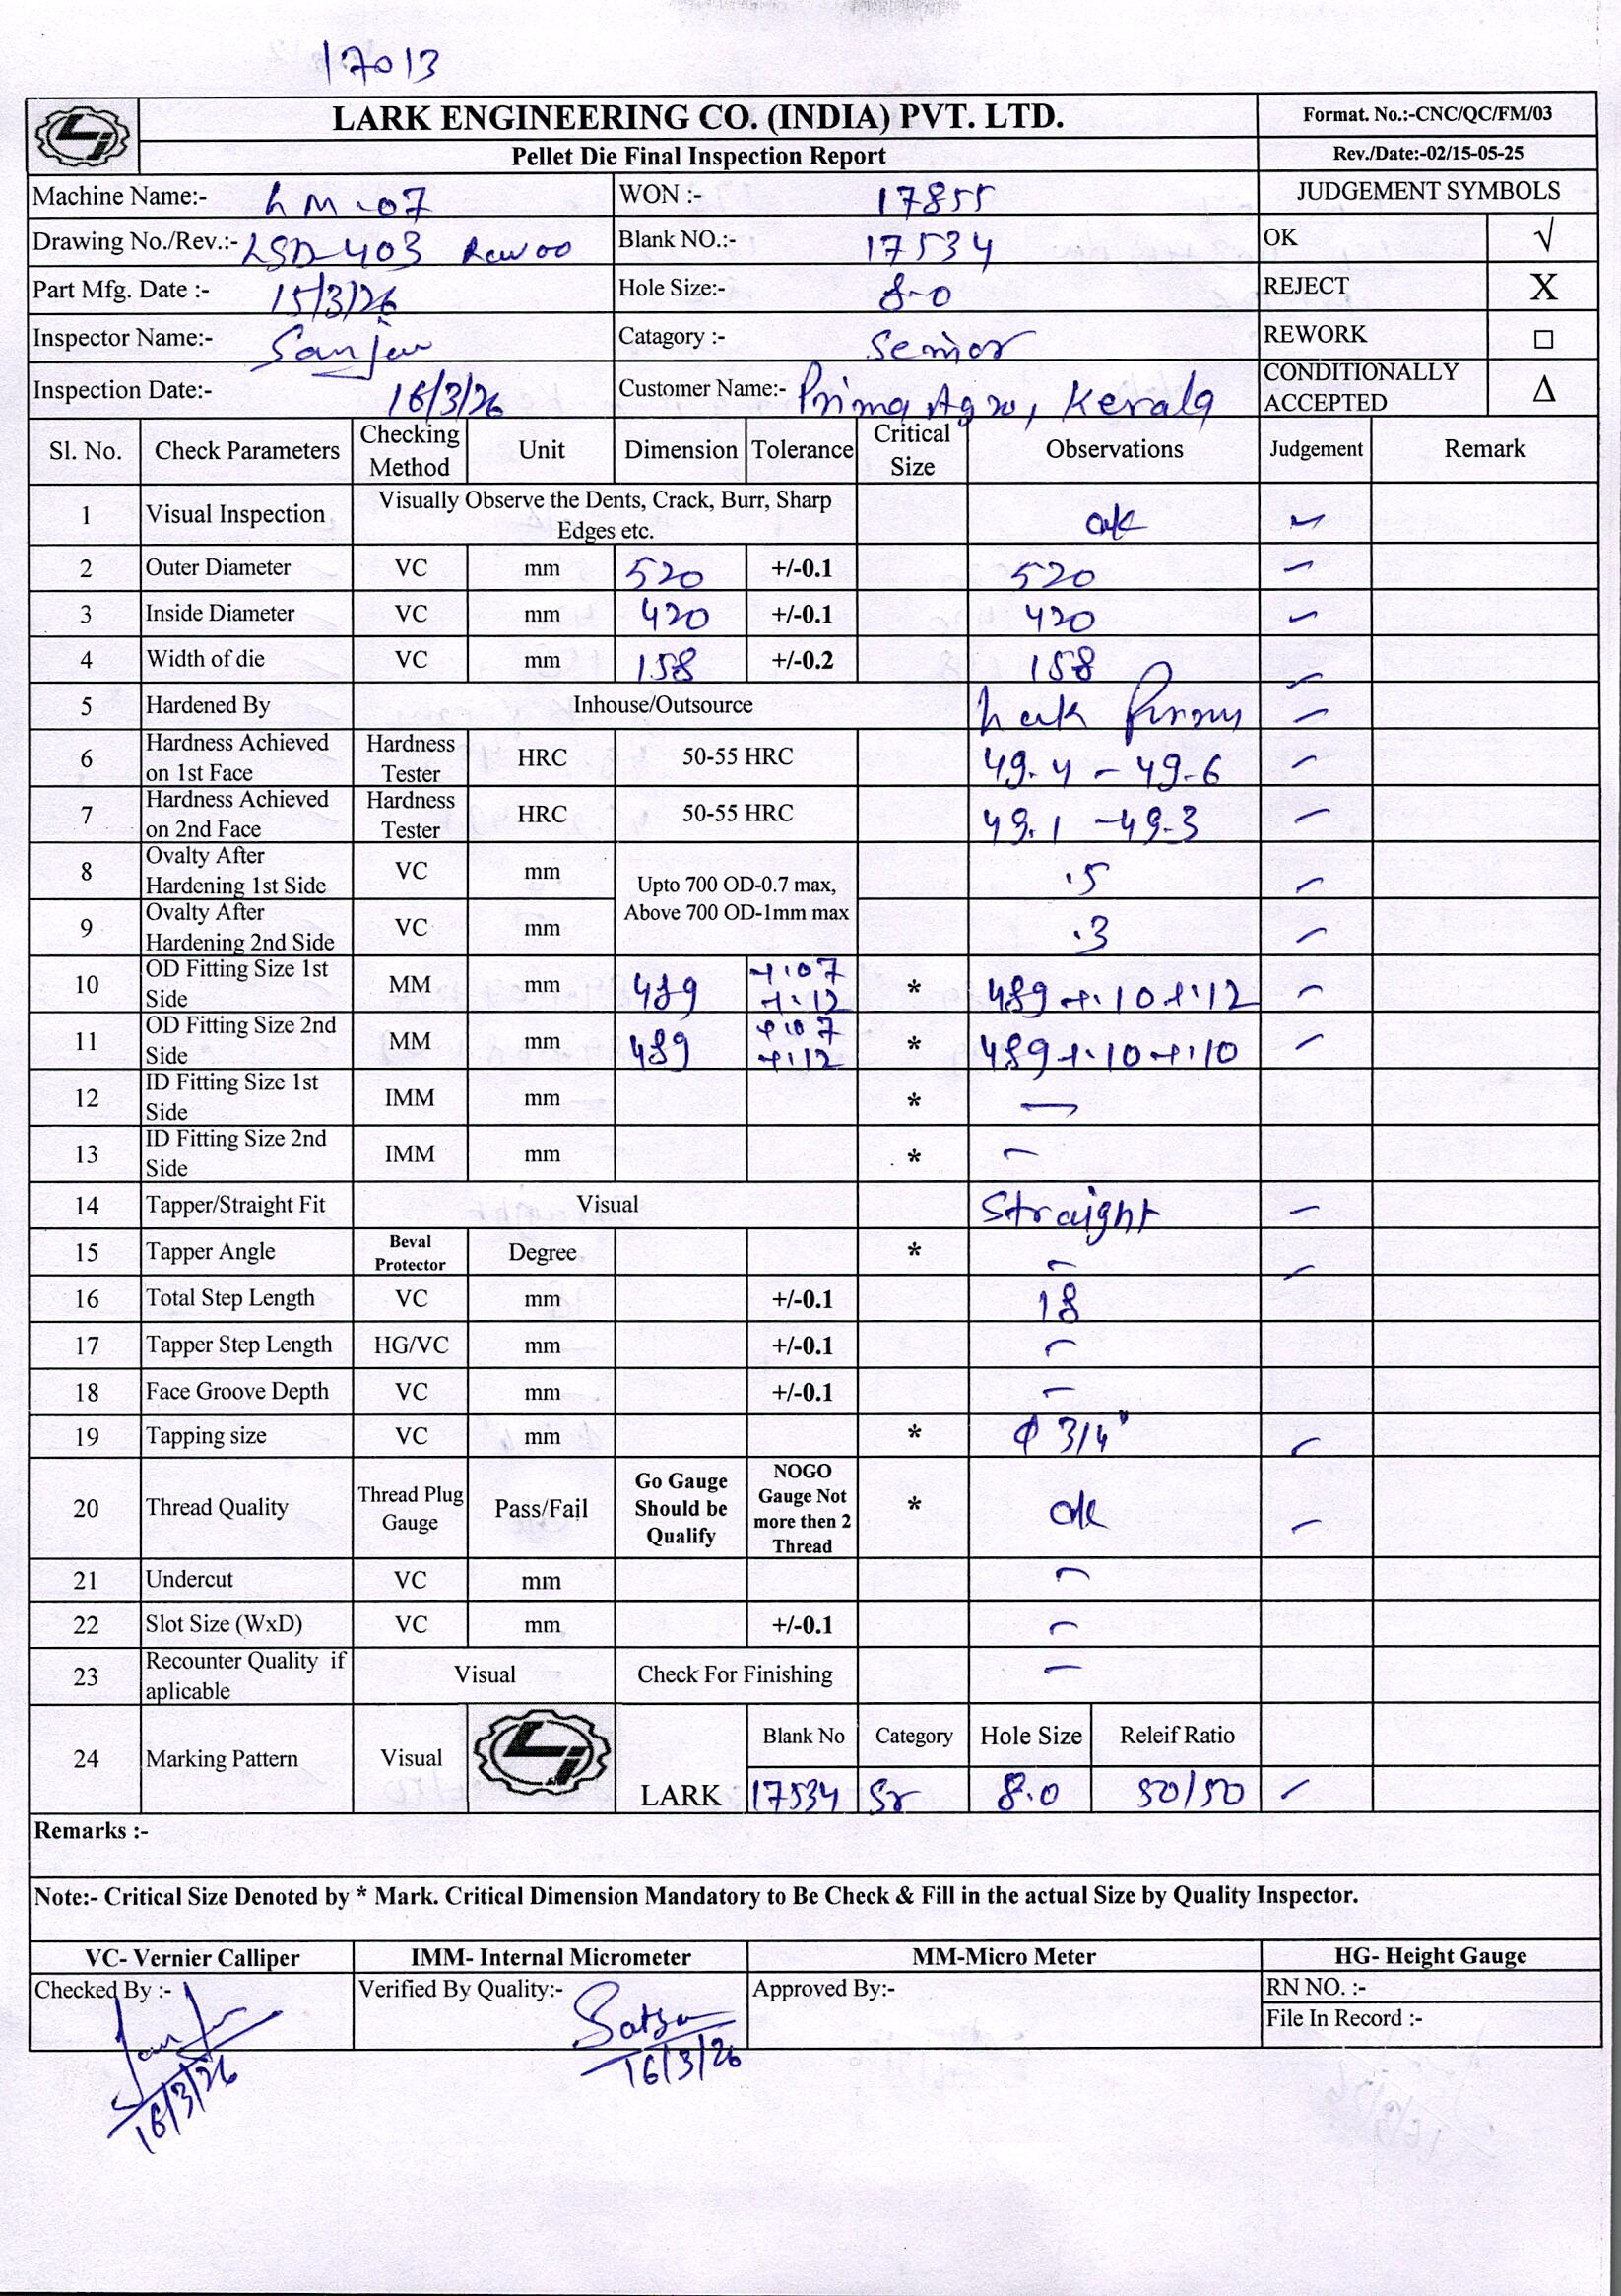 17013
LARK ENGINEERING CO. (INDIA) PVT. LTD.
Format. No.:-CNC/QC/FM/03
Pellet Die Final Inspection Report
Rev./Date:-02/15-05-25
Machine Name:- LM-07 WON :- 17855 JUDGEMENT SYMBOLS
Drawing No./Rev.:- LSD-403 Rev00 Blank NO.:- 17534 OK √
Part Mfg. Date :- 15/3/26 Hole Size:- 8-0 REJECT X
Inspector Name:- Sanjeev Catagory :- Senior REWORK □
Inspection Date:- 16/3/26 Customer Name:- Prima Agro, Kerala CONDITIONALLY ACCEPTED Δ
Sl. No. Check Parameters Checking Method Unit Dimension Tolerance Critical Size Observations Judgement Remark
1 Visual Inspection Visually Observe the Dents, Crack, Burr, Sharp Edges etc. ok ✓
2 Outer Diameter VC mm 520 +/-0.1 520 ✓
3 Inside Diameter VC mm 420 +/-0.1 420 ✓
4 Width of die VC mm 158 +/-0.2 158 ✓
5 Hardened By Inhouse/Outsource Lark ✓
6 Hardness Achieved on 1st Face Hardness Tester HRC 50-55 HRC 49.4 - 49.6 ✓
7 Hardness Achieved on 2nd Face Hardness Tester HRC 50-55 HRC 49.1 - 49.3 ✓
8 Ovalty After Hardening 1st Side VC mm Upto 700 OD-0.7 max, Above 700 OD-1mm max .5 ✓
9 Ovalty After Hardening 2nd Side VC mm .3 ✓
10 OD Fitting Size 1st Side MM mm 489 +.07 +.12 * 489 +.10 +.12 ✓
11 OD Fitting Size 2nd Side MM mm 489 +.07 +.12 * 489 +.10 +.10 ✓
12 ID Fitting Size 1st Side IMM mm * —
13 ID Fitting Size 2nd Side IMM mm * —
14 Tapper/Straight Fit Visual Straight ✓
15 Tapper Angle Beval Protector Degree * — ✓
16 Total Step Length VC mm +/-0.1 18
17 Tapper Step Length HG/VC mm +/-0.1 —
18 Face Groove Depth VC mm +/-0.1 —
19 Tapping size VC mm * φ 3/4" ✓
20 Thread Quality Thread Plug Gauge Pass/Fail Go Gauge Should be Qualify NOGO Gauge Not more then 2 Thread * ok ✓
21 Undercut VC mm —
22 Slot Size (WxD) VC mm +/-0.1 —
23 Recounter Quality if aplicable Visual Check For Finishing —
24 Marking Pattern Visual LARK Blank No Category Hole Size Releif Ratio
17534 Sr 8.0 50/50 ✓
Remarks :-
Note:- Critical Size Denoted by * Mark. Critical Dimension Mandatory to Be Check & Fill in the actual Size by Quality Inspector.
VC- Vernier Calliper IMM- Internal Micrometer MM-Micro Meter HG- Height Gauge
Checked By :- Verified By Quality:- Approved By:- RN NO. :-
File In Record :-
16/3/26 16/3/26